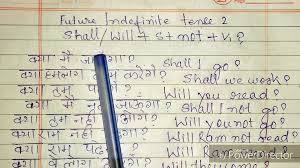 Future Indefinite tense 2
Shall/Will + S + not + V₁ ?
क्या मैं जाऊँगा? Shall I go?
क्या हमलोग काम करेंगे? Shall we work?
क्या तुम पढ़ोगे? Will you read?
क्या मैं नहीं जाऊँगा? Shall I not go?
क्या तुम नहीं जाओगे? Will you not go?
क्या राम नहीं पढ़ेगा? Will Ram not read?
क्या राम Will Ram
PowerDirector